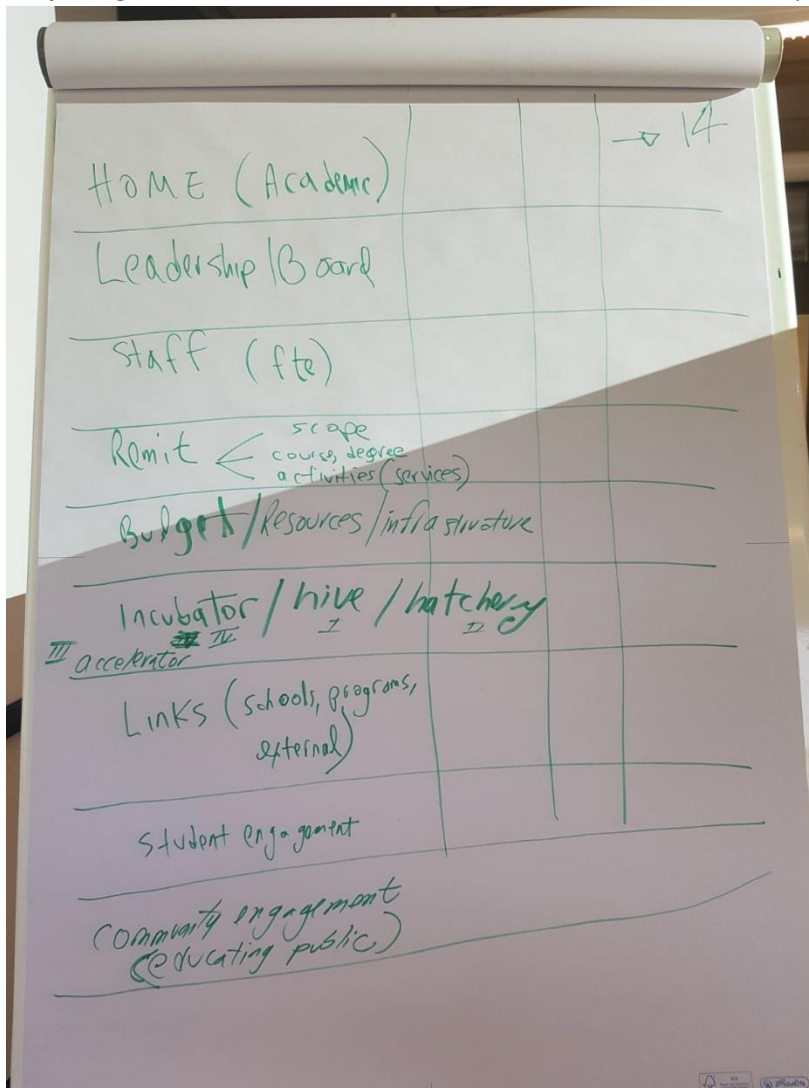 → 14
HOME (Academic)
Leadership/Board
Staff (fte)
Remit < scope
course, degree
activities (services)
Budget/Resources/infrastructure
Incubator / hive / hatchery
IV I II
III accelerator
Links (schools, programs,
external)
student engagement
community engagement
(educating public)